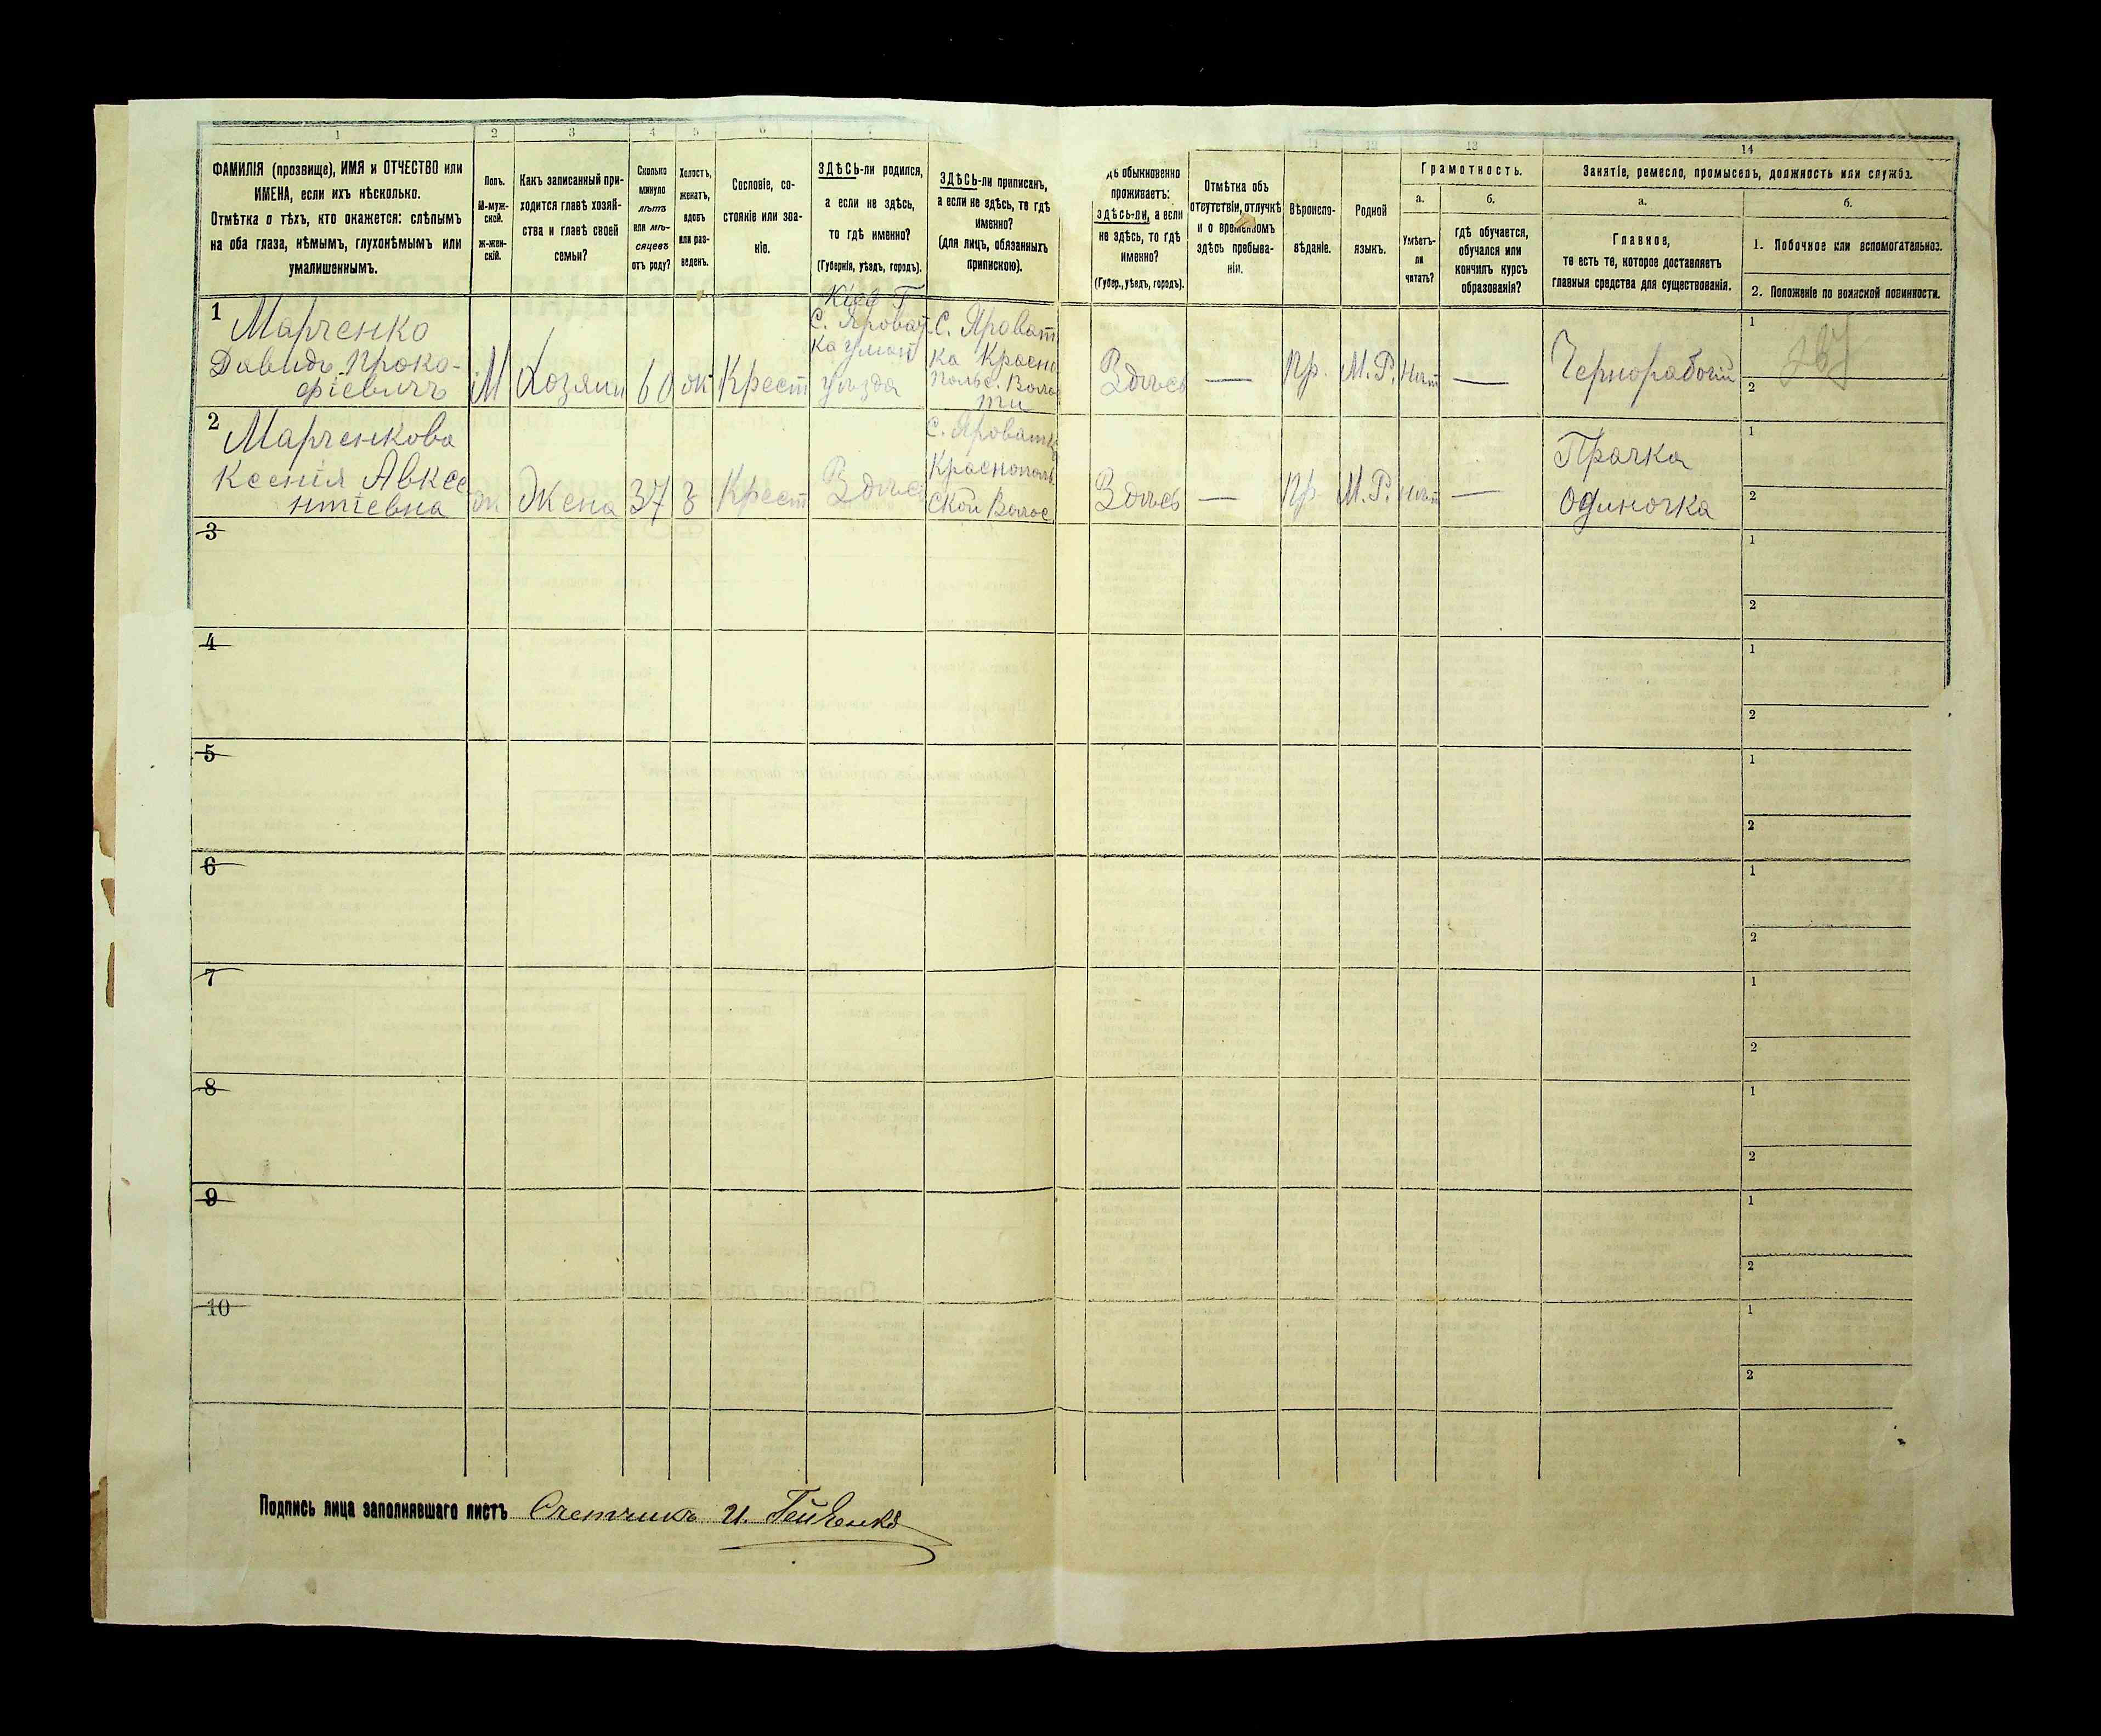 1 2 3 4 5 6 7
ФАМИЛІЯ (прозвище), ИМЯ и ОТЧЕСТВО или
ИМЕНА, если ихъ нѣсколько.
Отмѣтка о тѣхъ, кто окажется: слѣпымъ
на оба глаза, нѣмымъ, глухонѣмымъ или
умалишеннымъ.
Полъ.
М-муж-
ской.
ж-жен-
скій.
Какъ записанный при-
ходится главѣ хозяй-
ства и главѣ своей
семьи?
Сколько
минуло
лѣтъ
или мѣ-
сяцевъ
отъ роду?
Холостъ,
женатъ,
вдовъ
или раз-
веденъ.
Сословіе, со-
стояніе или зва-
ніе.
ЗДѢСЬ-ли родился,
а если не здѣсь,
то гдѣ именно?
(Губернія, уѣздъ, городъ).
ЗДѢСЬ-ли приписанъ,
а если не здѣсь, то гдѣ
именно?
(для лицъ, обязанныхъ
припискою).
дѣ обыкновенно
проживаетъ:
здѣсь-ли, а если
не здѣсь, то гдѣ
именно?
(Губер., уѣздъ, городъ).
Отмѣтка объ
отсутствіи, отлучкѣ
и о временномъ
здѣсь пребыва-
ніи.
11
Вѣроиспо-
вѣданіе.
12
Родной
языкъ.
13
Грамотность.
а.
Умѣетъ-
ли
читать?
б.
гдѣ обучается,
обучался или
кончилъ курсъ
образованія?
14
Занятіе, ремесло, промыселъ, должность или служба.
а.
Главное,
то есть то, которое доставляетъ
главныя средства для существованія.
б.
1. Побочное или вспомогательное.
2. Положеніе по воинской повинности.
1 Марченко
Давидъ Проко-
фіевичъ
М
Хозяин
60
ж
Крест
Кіев Г
С. Яроват
ка Уман
уѣзда
С. Яроват
ка Красно
польс. Воло
ти
Здѣсь
—
Пр.
М.Р.
Нѣт
—
Чернорабочій
1
2
2 Марченкова
Ксенія Авксе
нтіевна
ж
Жена
37
з
Крест
Здѣсь
С. Яроватк
Краснополь
ской Волос
Здѣсь
—
Пр
М.Р.
Нѣт
—
Прачка
Одиночка
1
2
3
1
2
4
1
2
5
1
2
6
1
2
7
1
2
8
1
2
9
1
2
10
1
2
Подпись лица заполнявшаго листъ Счетчикъ И.